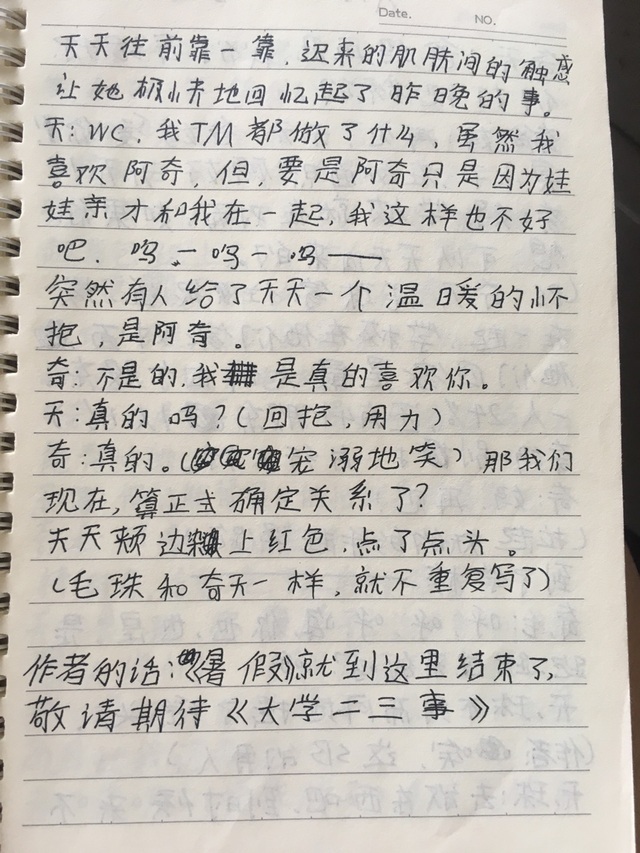 Date.
NO.
天天往前靠一靠,迟来的肌肤间的触感
让她极快地回忆起了昨晚的事。
天:WC,我TM都做了什么,虽然我
喜欢阿奇,但,要是阿奇只是因为娃
娃亲才和我在一起,我这样也不好
吧.呜一呜一呜——
突然有人给了天天一个温暖的怀
抱,是阿奇。
奇:不是的,我是真的喜欢你。
天:真的吗?(回抱,用力)
奇:真的。(宠溺地笑)那我们
现在,算正式确定关系了?
天天颊边上红色,点了点头。
(毛珠和奇天一样,就不重复写了)
作者的话:《暑假》就到这里结束了,
敬请期待《大学二三事》